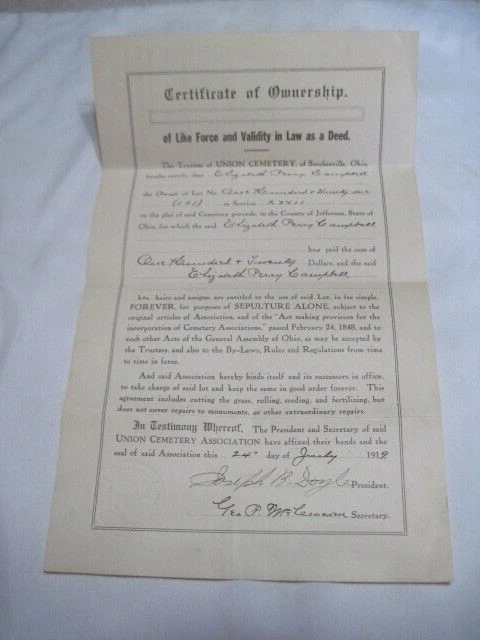 Certificate of Ownership.
of Like Force and Validity in Law as a Deed.
The Trustees of UNION CEMETERY, of Steubenville, Ohio,
hereby certify that Elizabeth Perry Campbell
the Owner of Lot No. One Hundred & Ninety
in Section XXVII
on the plat of said Cemetery grounds, in the County of Jefferson, State of
Ohio, for which the said Elizabeth Perry Campbell
has paid the sum of
One Hundred & Twenty Dollars, and the said
Elizabeth Perry Campbell
heirs and assigns, are entitled to the use of said Lot, in fee simple,
FOREVER, for purposes of SEPULTURE ALONE, subject to the
original articles of Association, and of the "Act making provision for the
incorporation of Cemetery Associations," passed February 24, 1848, and to
such other Acts of the General Assembly of Ohio, as may be accepted by
the Trustees, and also to the By-Laws, Rules and Regulations from time
to time in force.
And said Association hereby binds itself and its successors in office,
to take charge of said lot and keep the same in good order forever. This
agreement includes cutting the grass, rolling, seeding, and fertilizing, but
does not cover repairs to monuments, or other extraordinary repairs.
In Testimony Whereof, The President and Secretary of said
UNION CEMETERY ASSOCIATION have affixed their hands and the
seal of said Association this 24" day of July 1919
Joseph B. Doyle President.
Geo. P. McCracken Secretary.